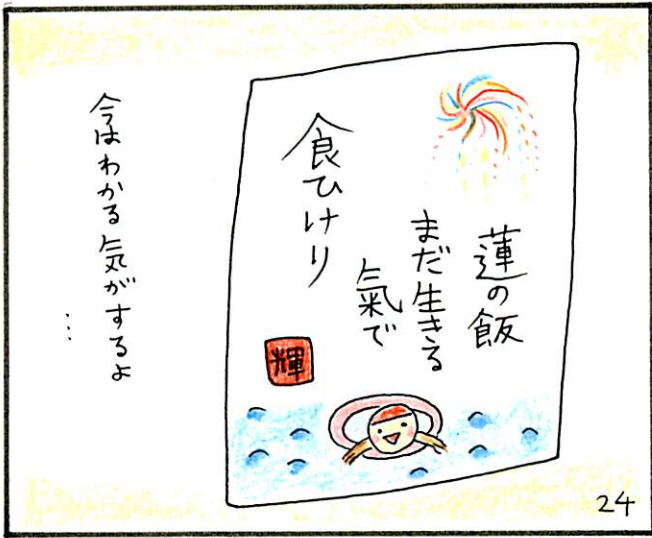 蓮の飯
まだ生きる
氣で
食ひけり
輝
今はわかる気がするよ
…
24